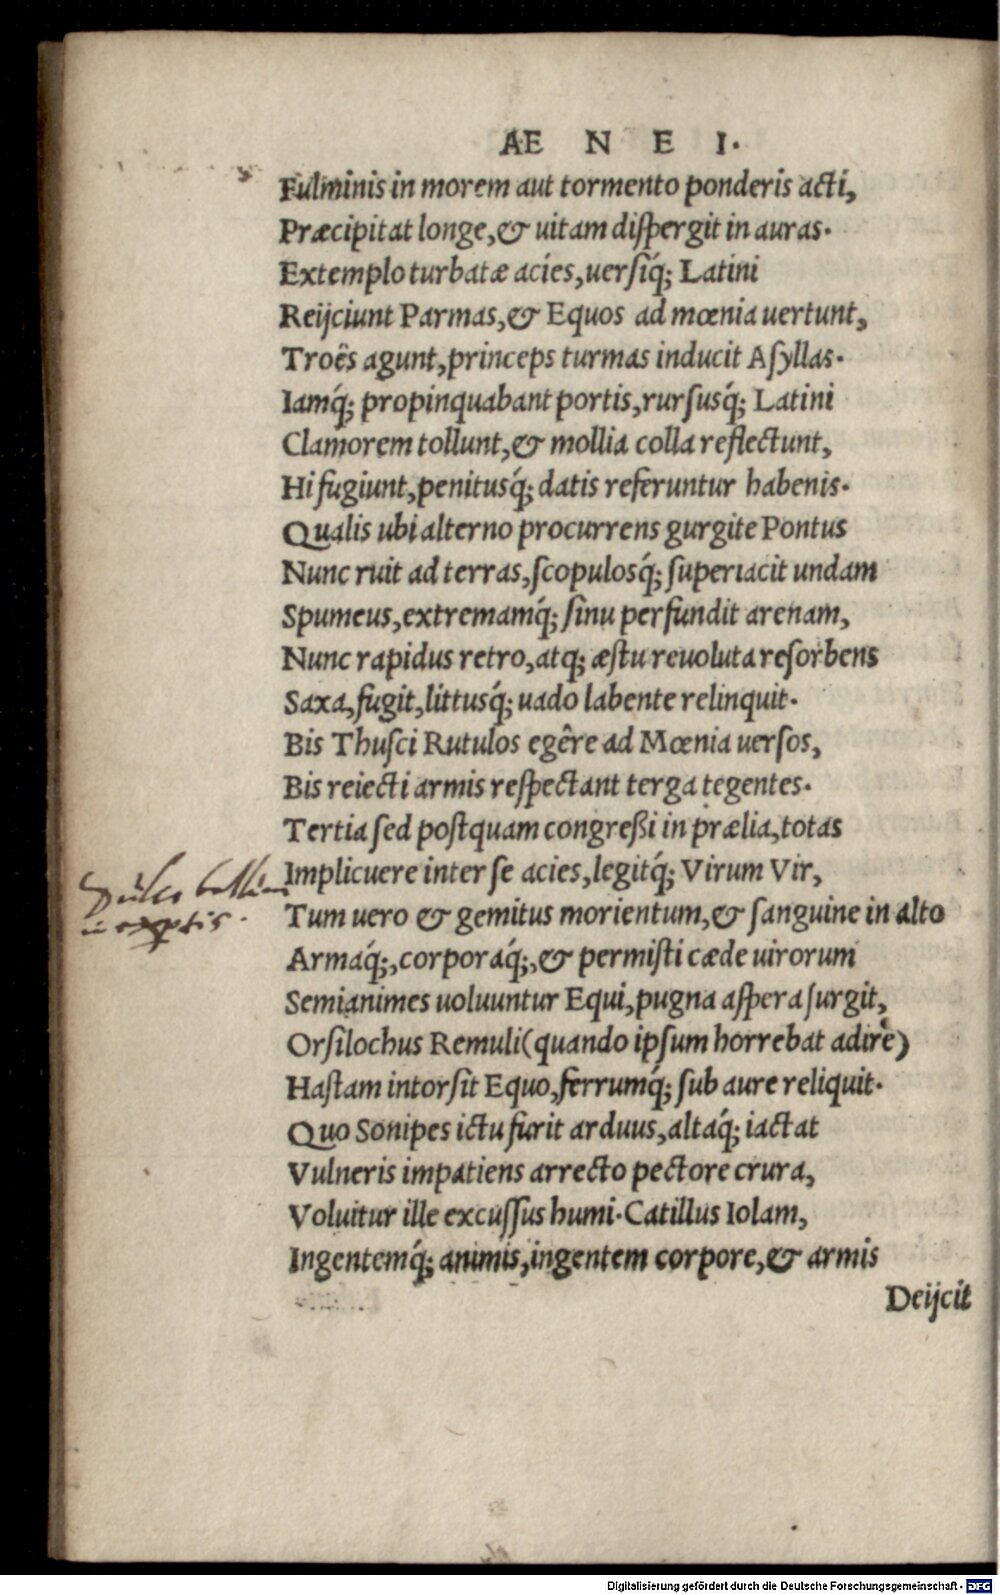 AE N E I.
Fulminis in morem aut tormento ponderis acti,
Præcipitat longe, & uitam dispergit in auras.
Extemplo turbatæ acies, uersiq́; Latini
Reijciunt Parmas, & Equos ad mœnia uertunt,
Troës agunt, princeps turmas inducit Asyllas.
Iamq́; propinquabant portis, rursusq́; Latini
Clamorem tollunt, & mollia colla reflectunt,
Hi fugiunt, penitusq́; datis referuntur habenis.
Qualis ubi alterno procurrens gurgite Pontus
Nunc ruit ad terras, scopulosq́; superiacit undam
Spumeus, extremamq́; sinu perfundit arenam,
Nunc rapidus retro, atq; æstu reuoluta resorbens
Saxa, fugit, littusq́; uado labente relinquit.
Bis Thusci Rutulos egêre ad Mœnia uersos,
Bis reiecti armis respectant terga tegentes.
Tertia sed postquam congreßi in prælia, totas
Implicuere inter se acies, legitq́; Virum Vir,
Tum uero & gemitus morientum, & sanguine in alto
Armaq́;, corporaq́;, & permisti cæde uirorum
Semianimes uoluuntur Equi, pugna aspera surgit,
Orsilochus Remuli (quando ipsum horrebat adire)
Hastam intorsit Equo, ferrumq́; sub aure reliquit.
Quo Sonipes ictu furit arduus, altaq́; iactat
Vulneris impatiens arrecto pectore crura,
Voluitur ille excussus humi. Catillus Iolam,
Ingentemq́; animis, ingentem corpore, & armis
Deijcit
Dulce bellum
inexptis.
Digitalisierung gefördert durch die Deutsche Forschungsgemeinschaft - DFG